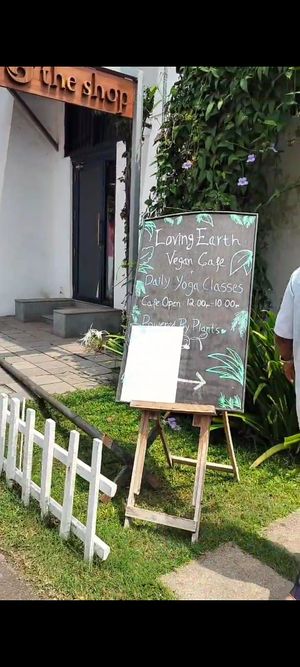 the shop
Loving Earth
Vegan Cafe
+
Daily Yoga Classes
Cafe Open 12.00pm-10.00pm
Powered By Plants